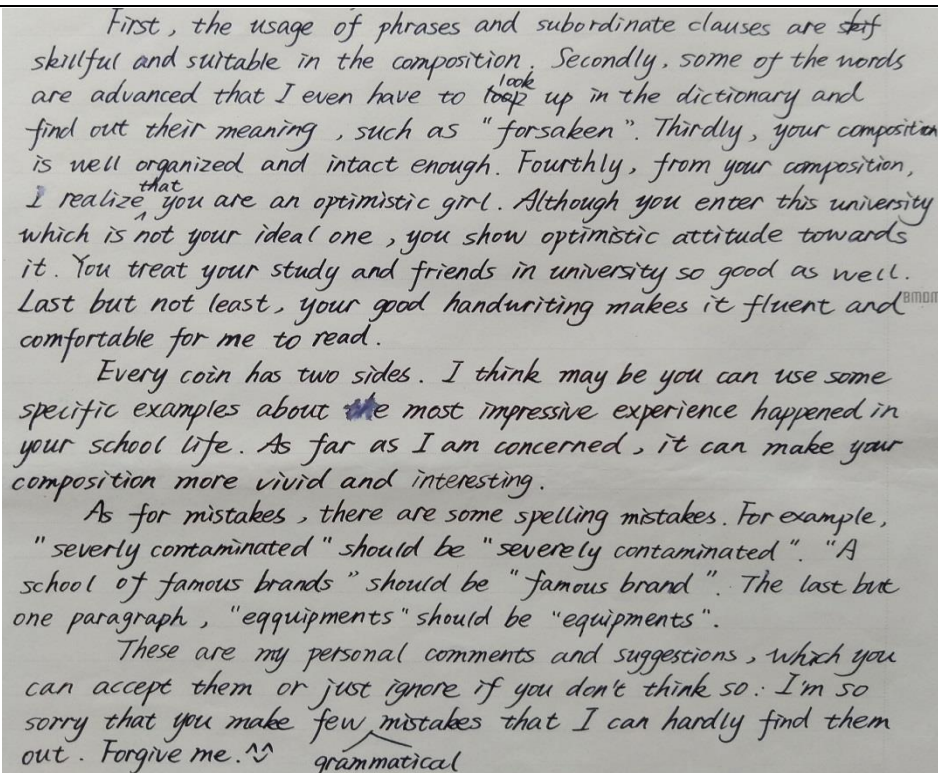 First, the usage of phrases and subordinate clauses are skif
skillful and suitable in the composition. Secondly, some of the words
are advanced that I even have to look up in the dictionary and
find out their meaning, such as "forsaken". Thirdly, your composition
is well organized and intact enough. Fourthly, from your composition,
I realize that you are an optimistic girl. Although you enter this university
which is not your ideal one, you show optimistic attitude towards
it. You treat your study and friends in university so good as well.
Last but not least, your good handwriting makes it fluent and
comfortable for me to read.
Every coin has two sides. I think may be you can use some
specific examples about the most impressive experience happened in
your school life. As far as I am concerned, it can make your
composition more vivid and interesting.
As for mistakes, there are some spelling mistakes. For example,
"severly contaminated" should be "severely contaminated". "A
school of famous brands" should be "famous brand". The last but
one paragraph, "eqquipments" should be "equipments".
These are my personal comments and suggestions, which you
can accept them or just ignore if you don't think so. I'm so
sorry that you make few grammatical mistakes that I can hardly find them
out. Forgive me. ^^